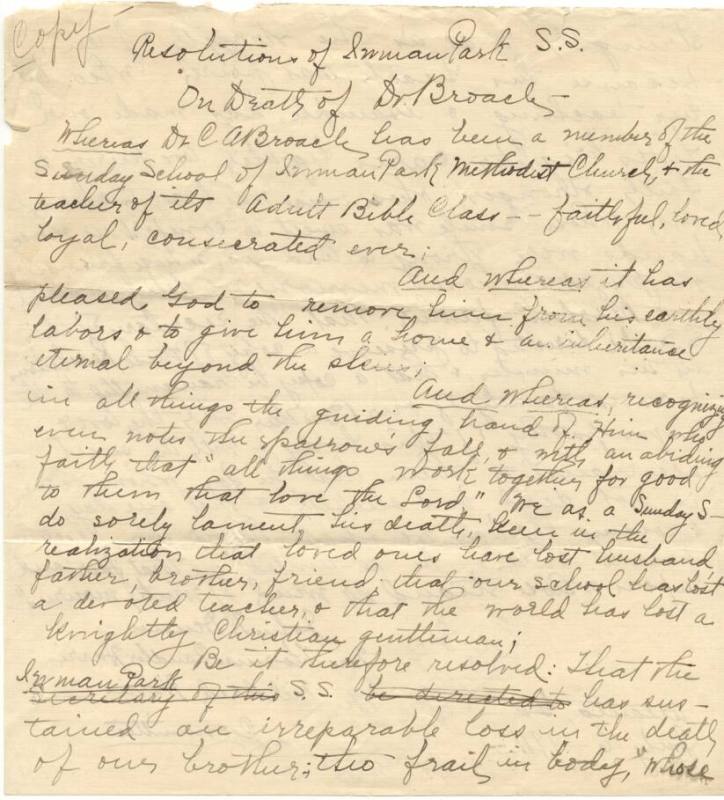 Copy
Resolutions of Inman Park S.S.
On Death of Dr Broach
Whereas Dr C A Broach has been a member of the
Sunday School of Inman Park Methodist Church, & the
teacher of its Adult Bible Class -- faithful, loved,
loyal, consecrated ever;
And whereas it has
pleased God to remove him from his earthly
labors & to give him a home & an inheritance
eternal beyond the skies;
And whereas, recognizing
in all things the guiding hand of Him who
even notes the sparrow's fall, & with an abiding
faith that "all things work together for good
to them that love the Lord," We as a Sunday S-
do sorely lament his death, keen in the
realization that loved ones have lost husband,
father, brother, friend; that our school has lost
a devoted teacher, & that the world has lost a
knightly Christian gentleman;
Be it therefore resolved: That the
Inman Park
Secretary of this S.S. be directed to has sus-
tained an irreparable loss in the death
of our brother; tho frail in body, "whose